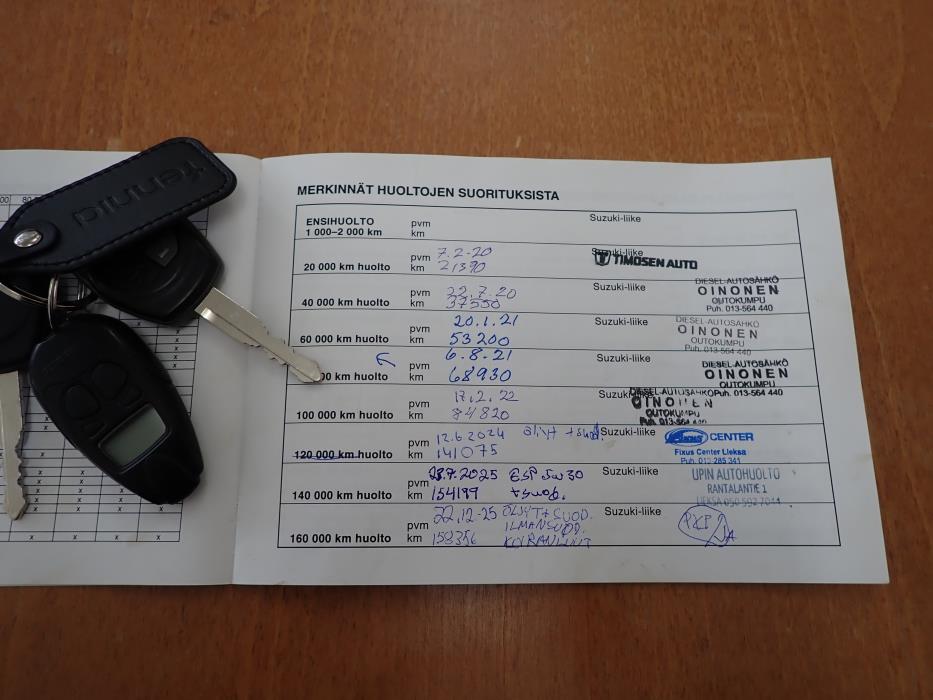 fennia
MERKINNÄT HUOLTOJEN SUORITUKSISTA
ENSIHUOLTO pvm Suzuki-liike
1 000–2 000 km km
20 000 km huolto pvm 7.2-20 Suzuki-liike
km 21390 TIMOSEN AUTO
40 000 km huolto pvm 22.7.20 Suzuki-liike DIESEL-AUTOSÄHKÖ
km 37550 OINONEN
OUTOKUMPU
Puh. 013-564 440
60 000 km huolto pvm 20.1.21 Suzuki-liike DIESEL-AUTOSÄHKÖ
km 53200 OINONEN
OUTOKUMPU
Puh. 013-564 440
00 km huolto pvm 6.8.21 Suzuki-liike DIESEL-AUTOSÄHKÖ
km 68930 OINONEN
OUTOKUMPU
Puh. 013-564 440
100 000 km huolto pvm 17.2.22 Suzuki-liike DIESEL-AUTOSÄHKÖ
km 84820 OINONEN
OUTOKUMPU
Puh. 013-564 440
120 000 km huolto pvm 12.6.2024 öljyt + suod. Suzuki-liike Fixus CENTER
km 141075 Fixus Center Lieksa
140 000 km huolto pvm 7.2025 ESP 5w30 Suzuki-liike UPIN AUTOHUOLTO
km 154199 + suod. RANTALANTIE 1
LIEKSA 050 592 7044
160 000 km huolto pvm 22.12-25 ÖLJYT + SUOD. Suzuki-liike
ILMANSUOD.
km 159356